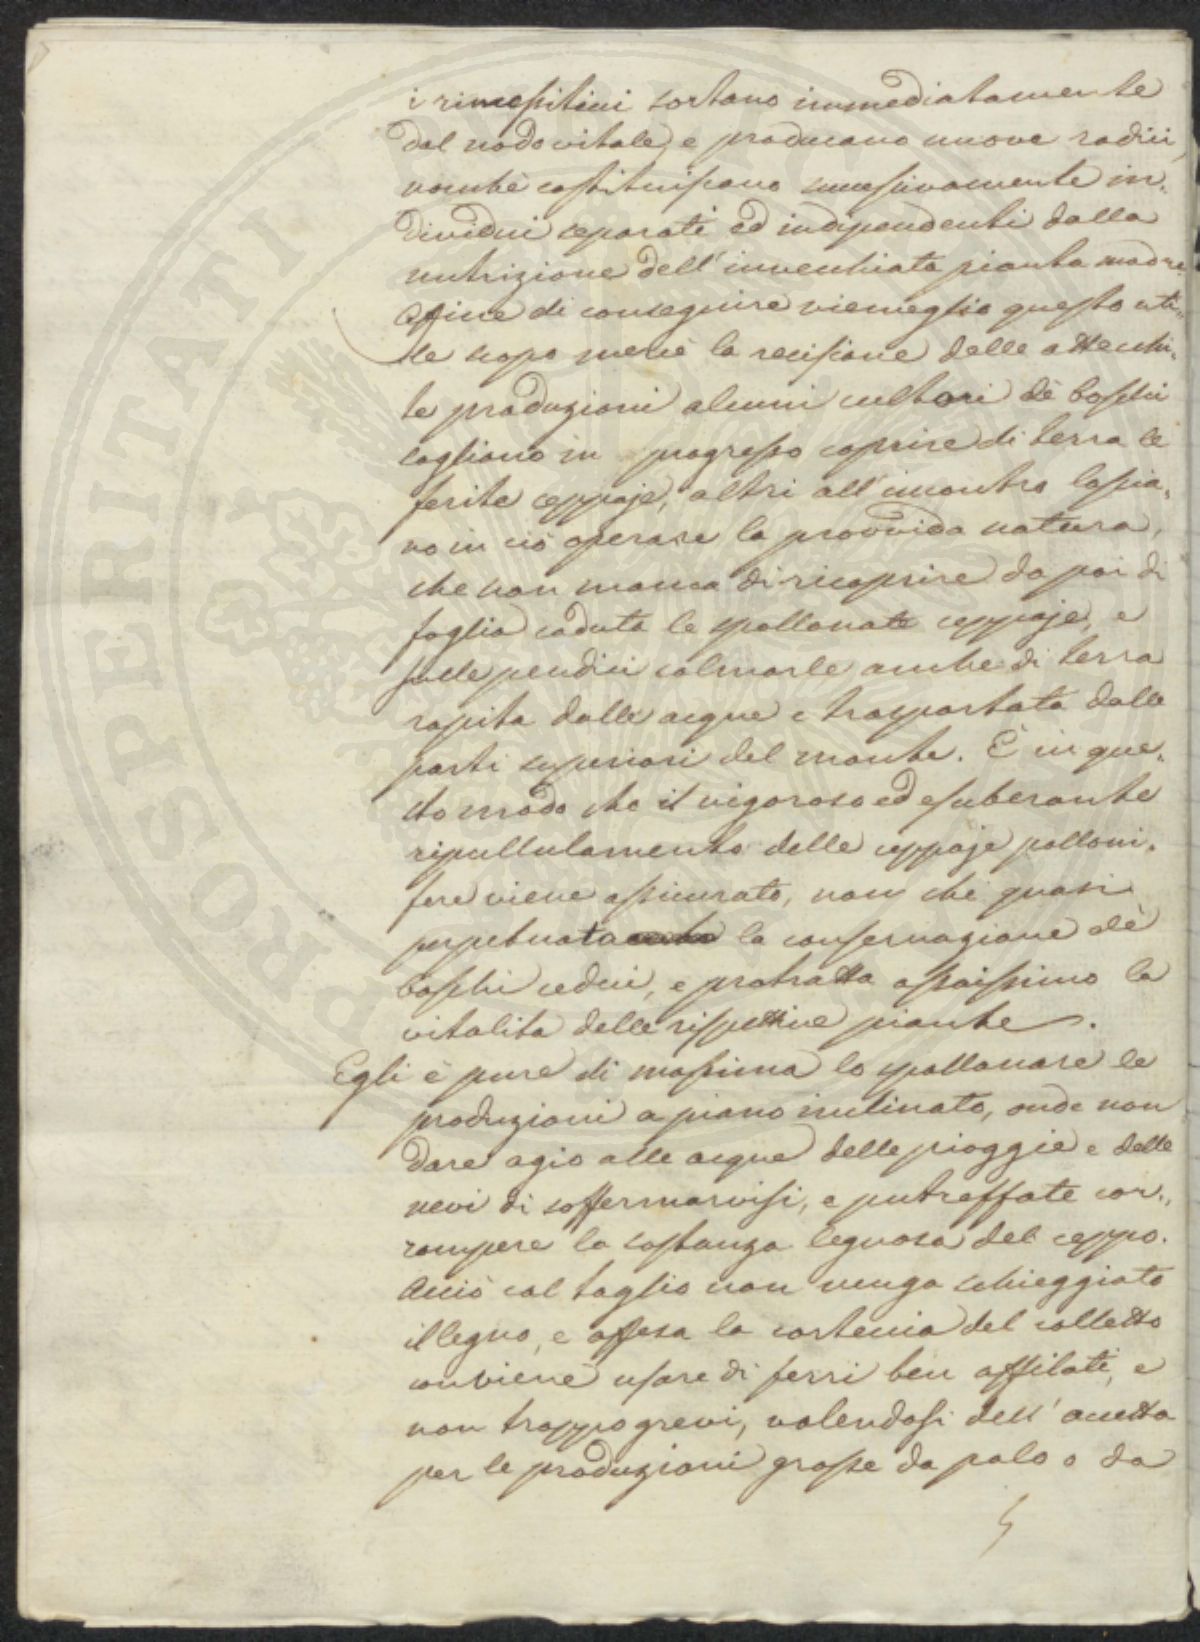 i rimessitini sortano immediatamente
dal nodo vitale, e producano nuove radici,
nonchè costituiscano successivamente in„
dividui separati ed indipendenti dalla
nutrizione dell'invecchiata pianta madre.
Affine di conseguire viemeglio questo uti„
le scopo mercè la recisione delle attecchi„
te produzioni alcuni cultori dè boschi
sogliono in progresso coprire di terra le
ferite ceppaje, altri all'incontro lascia„
no in ciò operare la provvida natura,
che non manca di ricoprire da poi di
foglia caduta le spollonate ceppaje, e
sulle pendici colmarle anche di terra
rapita dalle acque e trasportata dalle
parti superiori del monte. È in que„
sto modo che il vigoroso ed esuberante
ripullulamento delle ceppaje polloni„
fere viene assicurato, non che quasi
perpetuata la conservazione dè
boschi cedui, e protratta assaissimo la
vitalita delle rispettive piante.
Egli è pure di massima lo spollonare le
produzioni a piano inclinato, onde non
dare agio alle acque delle pioggie e delle
nevi di soffermarvisi, e putreffate cor„
rompere la sostanza legnosa del ceppo.
Acciò col taglio non venga scheggiato
il legno, e offesa la corteccia del colletto
conviene usare di ferri ben affilati, e
non troppo grevi, valendosi dell'accetta
per le produzioni grosse da palo o da